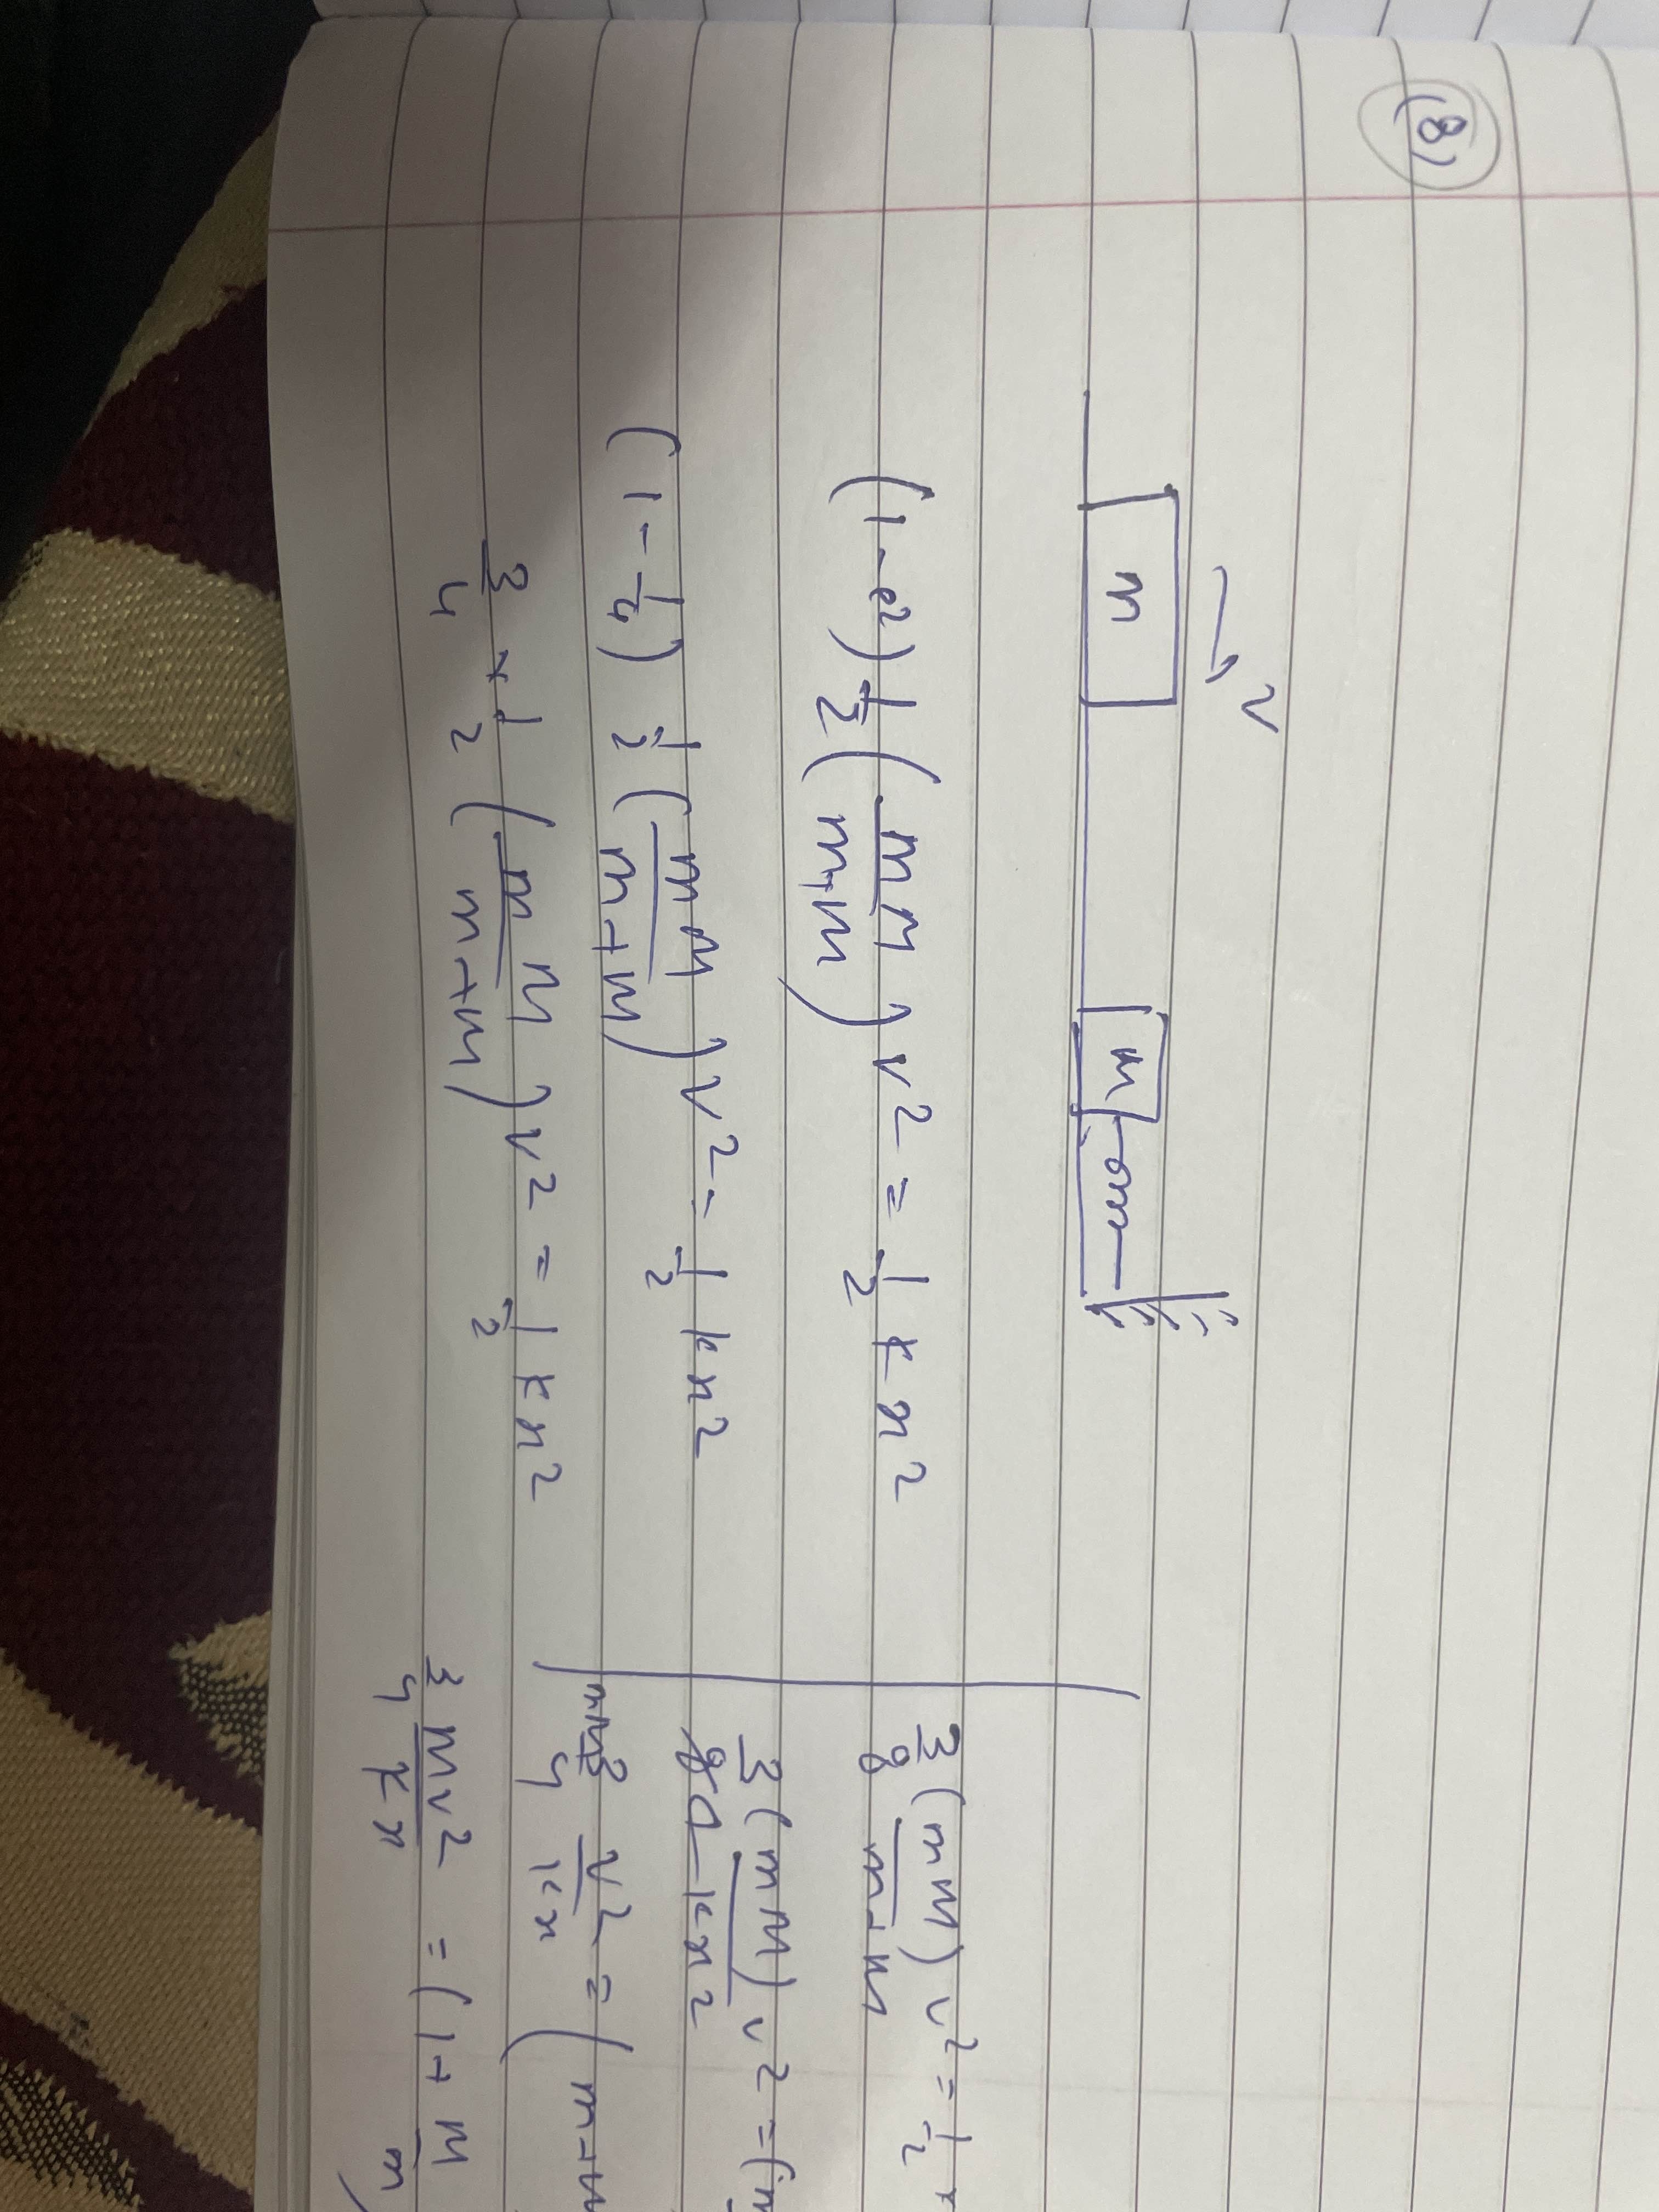 (8)
v
m
m
(1-e²) 1/2 (mM/m+M) v² = 1/2 k x²
(1 - 1/4) 1/2 (mM/m+M) v² = 1/2 k x²
3/4 × 1/2 (mM/m+M) v² = 1/2 k x²
3/8 (mM)/m+M v² = 1/2
3 (mM) v² =
3/4 v²/kx = (m+M
3/4 Mv²/kx = (1 + M/m)